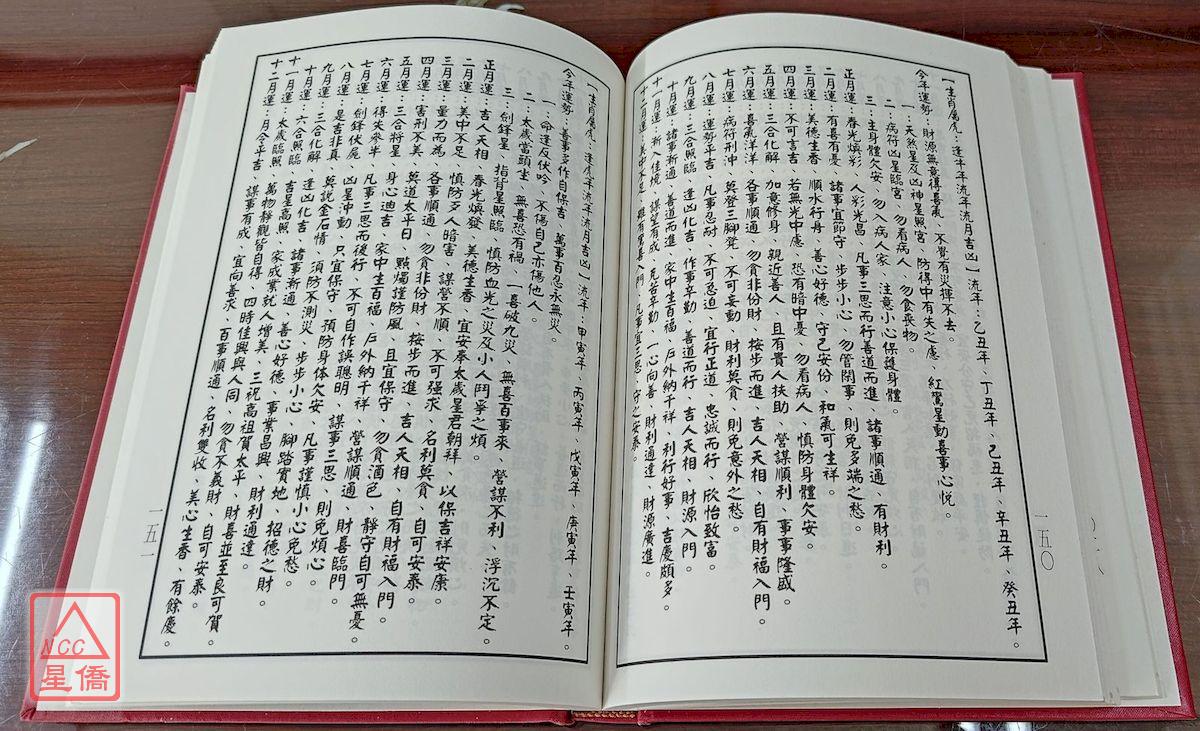 【生肖屬虎:逢牛年流年流月吉凶】流年:乙丑年、丁丑年、己丑年、辛丑年、癸丑年。
今年運勢:財源無意得喜氣,不覺有災揮不去。
一:天煞星及凶神星照宮、防得中有失之慮、紅鸞星動喜事心悅。
二:病符凶星臨宮、勿看病人、勿食喪物。
三:主身體欠安、勿入病人家、注意小心保護身體。
正月運:春光煥彩 人彩光昌、凡事三思而行善道而進、諸事順通、有財利。
二月運:有喜有憂 諸事宜節守、步步小心、勿管閑事、則免多端之愁。
三月運:美德生香 順水行舟、善心好德、守己安份、和氣可生祥。
四月運:不可言吉 若無光中慮、恐有暗中憂、勿看病人、慎防身體欠安。
五月運:三合化解 加意修身、親近善人、且有貴人扶助、營謀順利、事事隆盛。
六月運:喜氣洋洋 各事順通、勿貪非份財、按步而進、吉人天相、自有財福入門。
七月運:病符刑沖 莫登三腳凳、不可妄動、財利莫貪、則免意外之愁。
八月運:運勢平吉 凡事忍耐、不可忍迫、宜行正道、忠誠而行、欣怡致富。
九月運:三合照臨 逢凶化吉、作事辛勤、善道而行、吉人天相、財源入門。
十月運:諸事漸通 善道而進、家中生百福、戶外納千祥、利行好事、吉慶頗多。
十一月運:漸入佳境 謀望有成、克苦辛勤、一心向善、財利通達、財源廣進。
十二月運:美中不足 雖有驚喜入門、凡事宜三思、守之安泰。
一五〇
【生肖屬虎:逢虎年流年流月吉凶】流年:甲寅年、丙寅年、戊寅年、庚寅年、壬寅年。
今年運勢:善事多作自保吉,萬事百忍永無災。
一:命逢反伏吟、不傷自己亦傷他人。
二:太歲當頭坐、無喜恐有禍、一喜破九災、無喜百事來、營謀不利、浮沉不定。
三:劍鋒星、指背星照臨、慎防血光之災及小人鬥爭之煩。
正月運:吉人天相 春光煥發、美德生香、宜安奉太歲星君朝祥、以保吉祥安康。
二月運:美中不足 慎防歹人暗害、謀營不順、不可强求、名利莫貪、自可安泰。
三月運:量力而為 各事順通、勿貪非份財、按步而進、吉人天相、自有財福入門。
四月運:害刑不美 莫道太平日、點燭謹防風、且宜保守、勿貪酒色、靜守自可無憂。
五月運:三合將星 身心迪吉、家中生百福、戶外納千祥、營謀順通、財喜臨門。
六月運:得失參半 凡事三思而後行、不可自作誤聰明、謀事三思、則免煩心。
七月運:劍鋒伏屍 凶星沖動、只宜保守、預防身体欠安、凡事謹慎小心免愁。
八月運:是吉非真 莫說金石情、須防不測災、步步小心、腳踏實地、招德之財。
九月運:三合化解 逢凶化吉、諸事漸通、善心好德、事業昌興、財利通達。
十月運:六合照臨 吉星高照、家成業就人增美、三祝高祖賀太平、財喜並至良可賀。
十一月運:太歲臨照 萬物靜觀皆自得、四時佳興與人同、勿貪不義財、自可安泰。
十二月運:月令平吉 謀事有成、宜向善求、百事順通、名利雙收、美心生香、有餘慶。
一五一
NCC
星僑